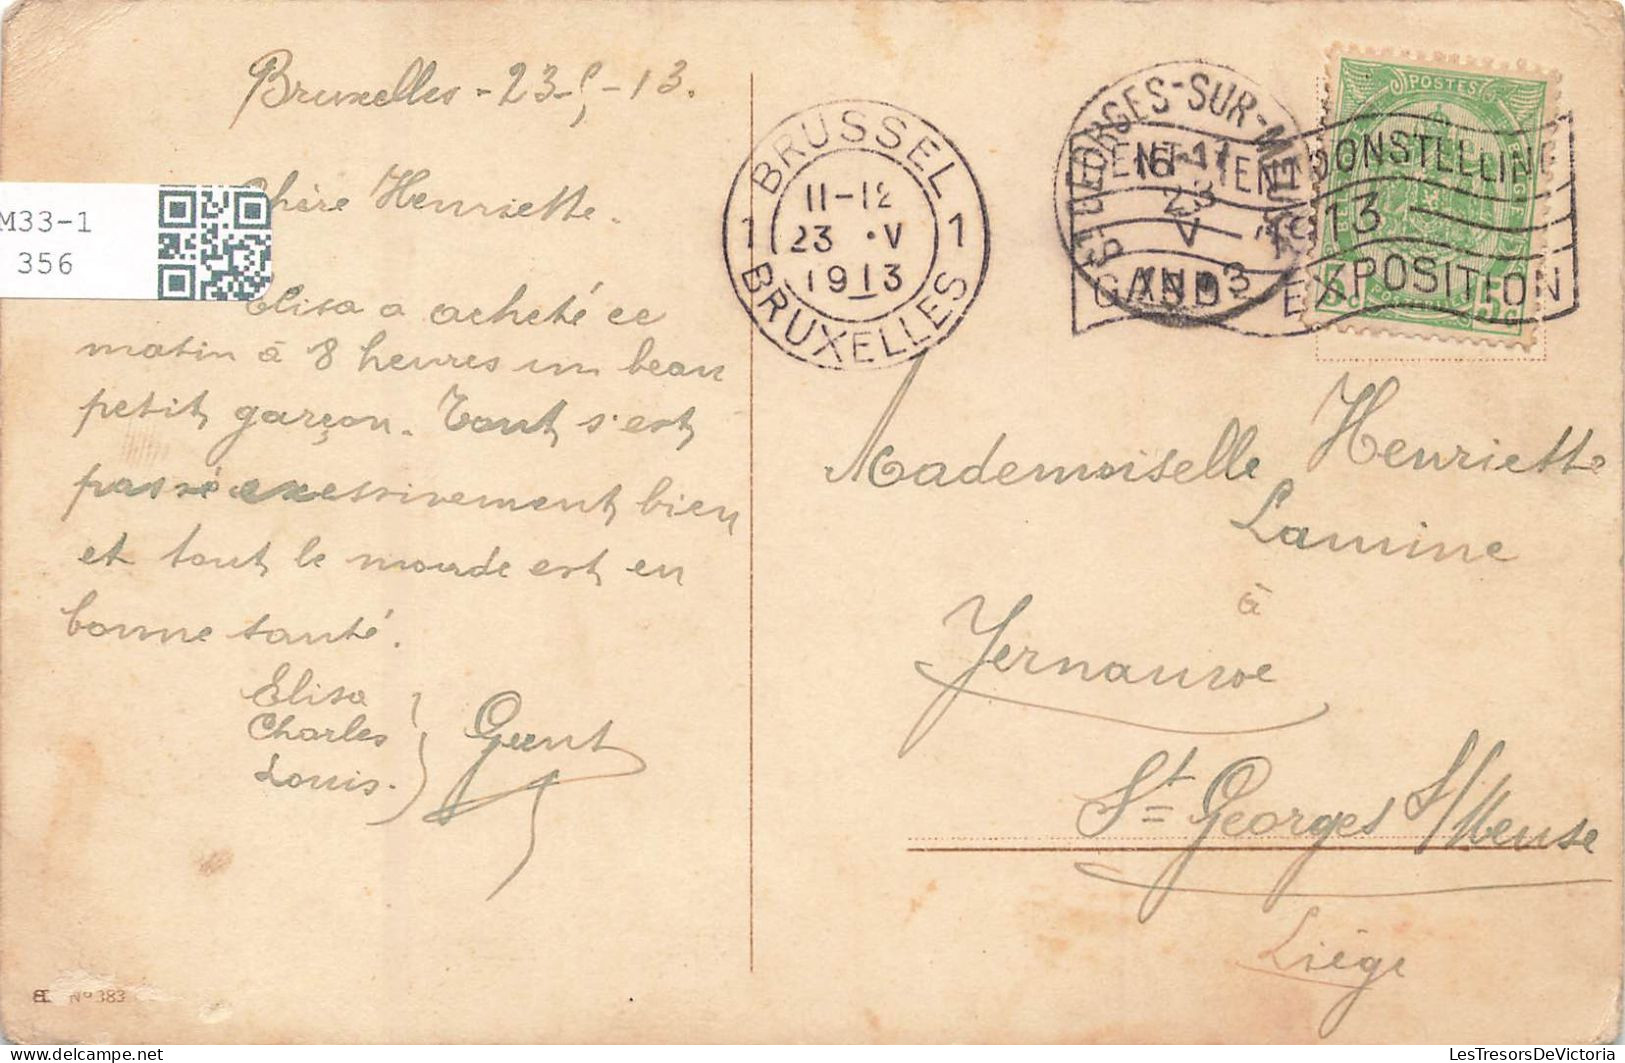 Bruxelles - 23-5-13.
Chère Henriette.
Elisa a acheté ce
matin à 8 heures un beau
petit garçon. Tout s'est
passé excessivement bien
et tout le monde est en
bonne santé.
Elisa
Charles
Louis.
M33-1
356
Nº 383
BRUSSEL
1 1
11-12
23 · V
1913
BRUXELLES
ST GEORGES-SUR-MEUSE
16-17
23
V
GENT-TENTOONSTELLING
1913
GAND EXPOSITION
POSTES
5c 5c
Mademoiselle Henriette
Lamine
à
Yernauwe
St Georges S/Meuse
Liège
delcampe.net
LesTresorsDeVictoria